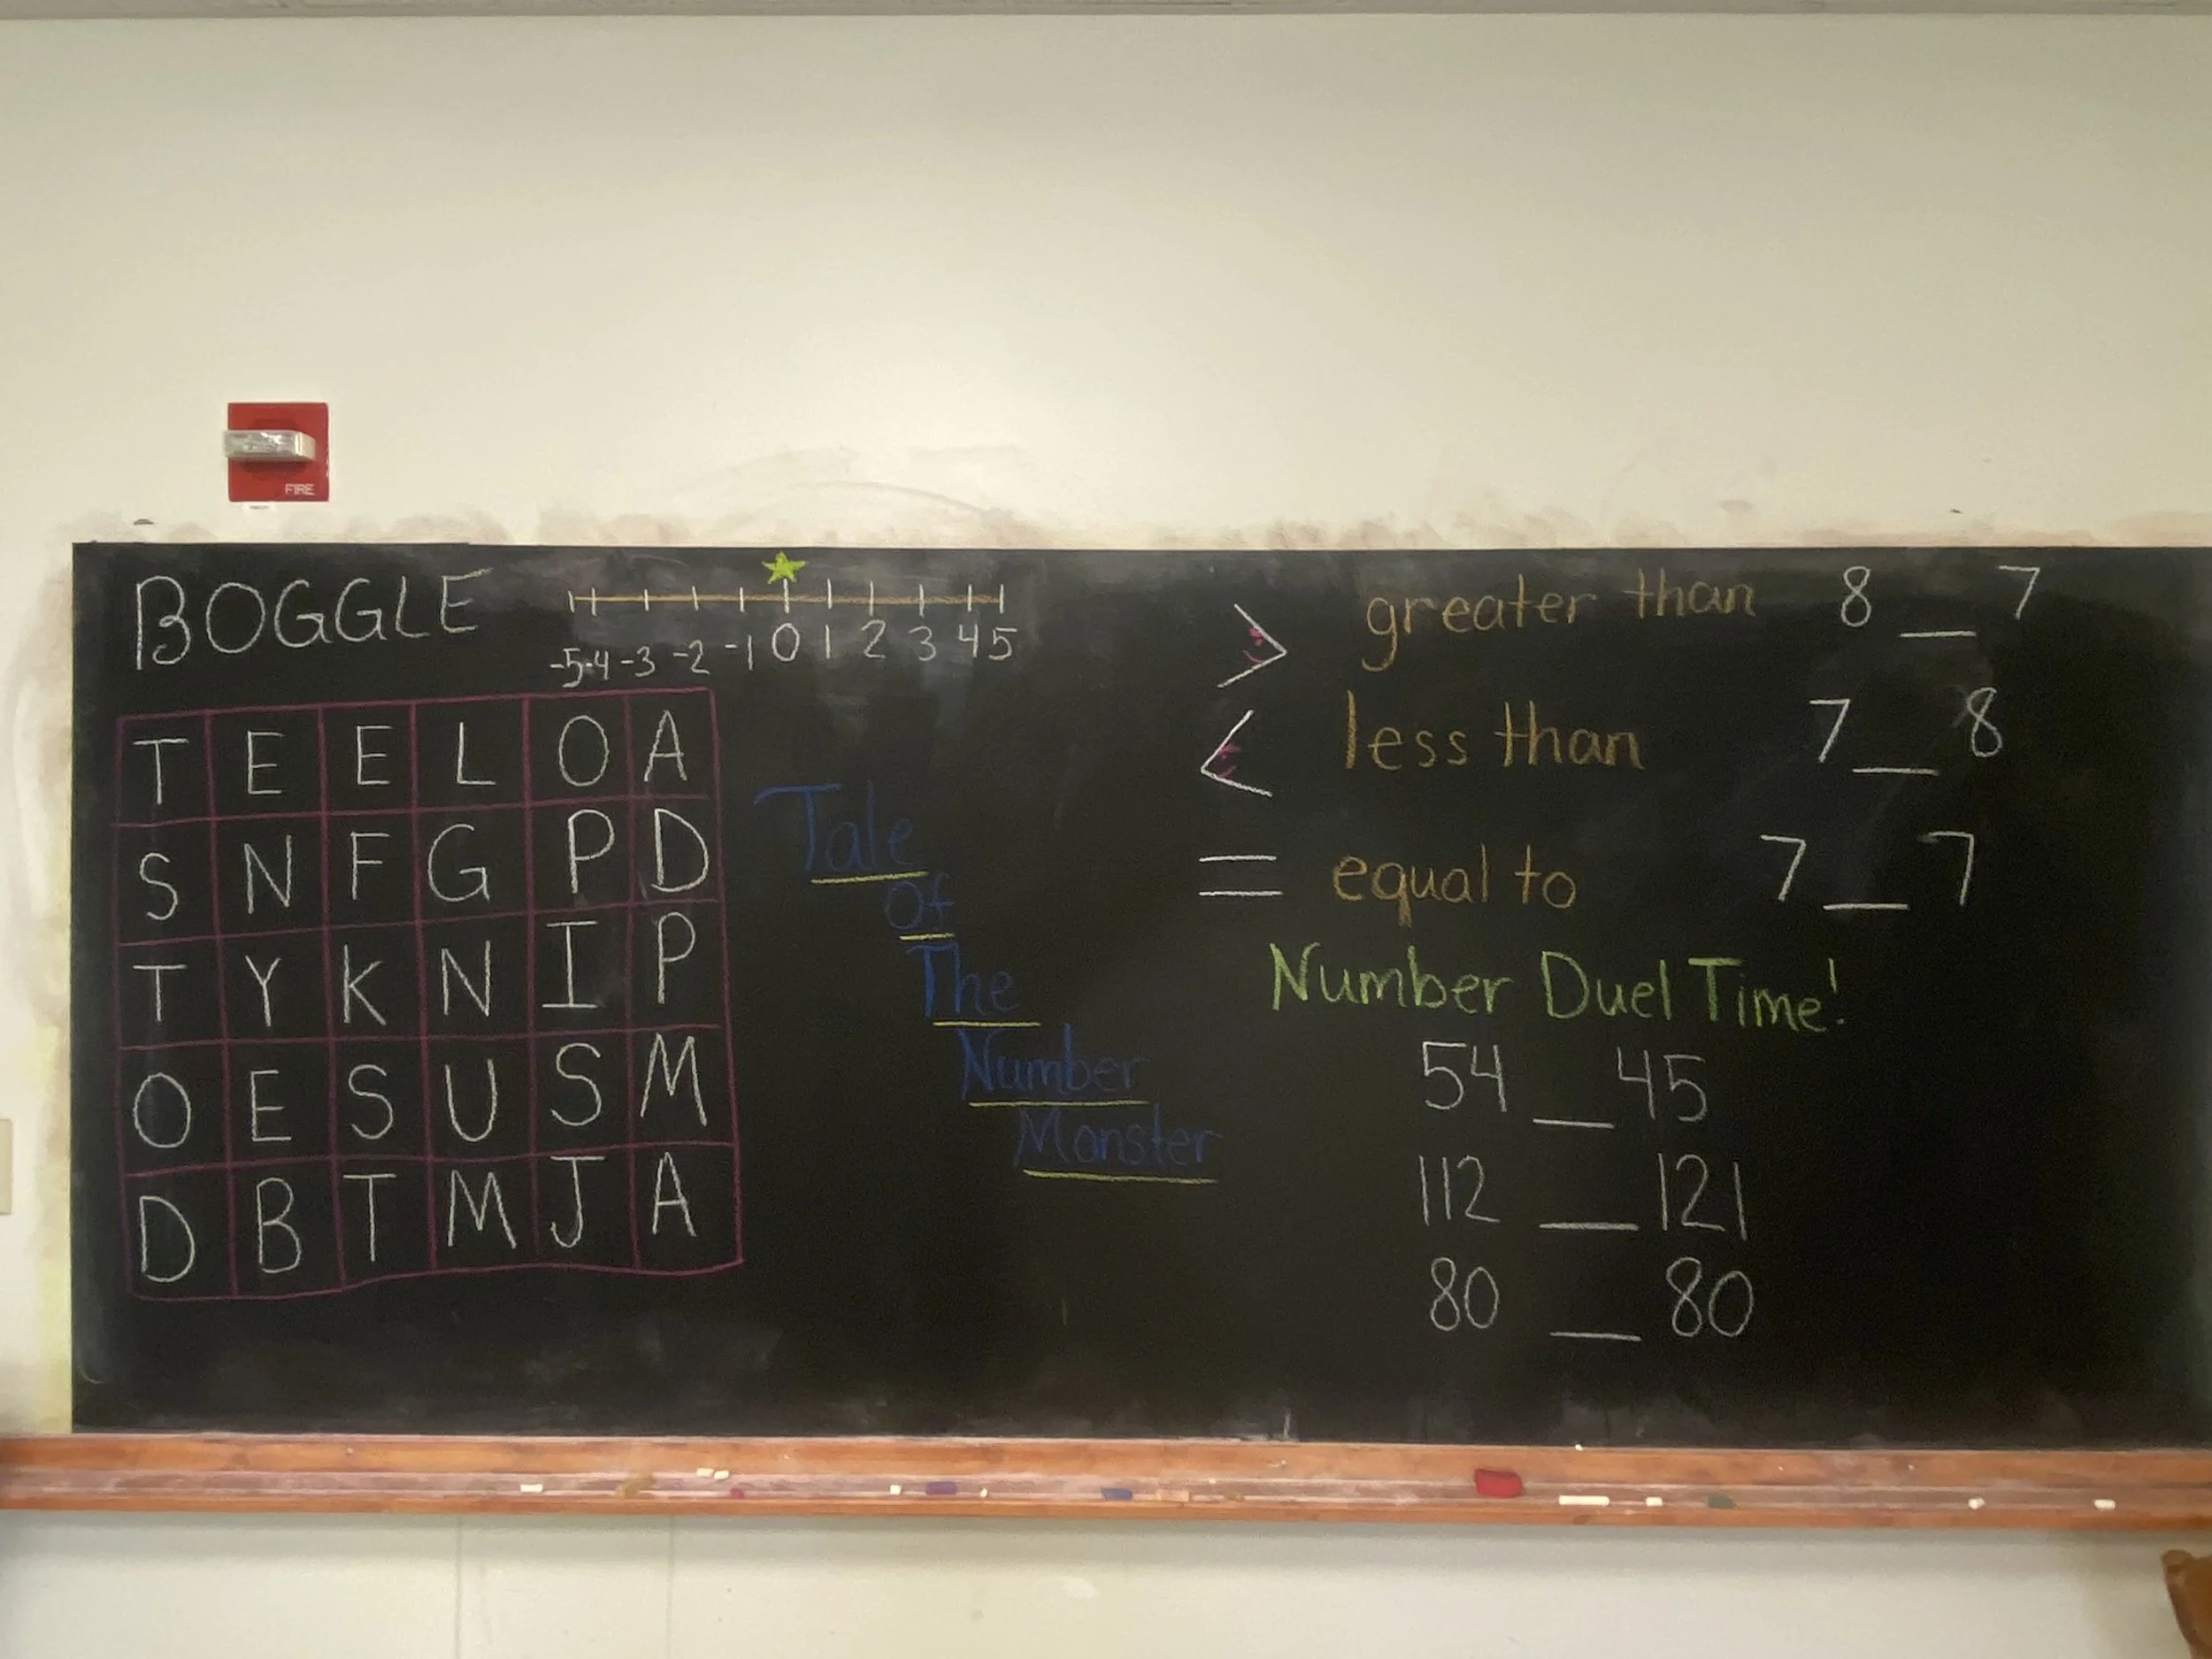 FIRE
BOGGLE
-5 -4 -3 -2 -1 0 1 2 3 4 5
T E E L O A
S N F G P D
T Y K N I P
O E S U S M
D B T M J A
Tale
of
The
Number
Monster
> greater than 8 __ 7
< less than 7 __ 8
= equal to 7 __ 7
Number Duel Time!
54 __ 45
112 __ 121
80 __ 80